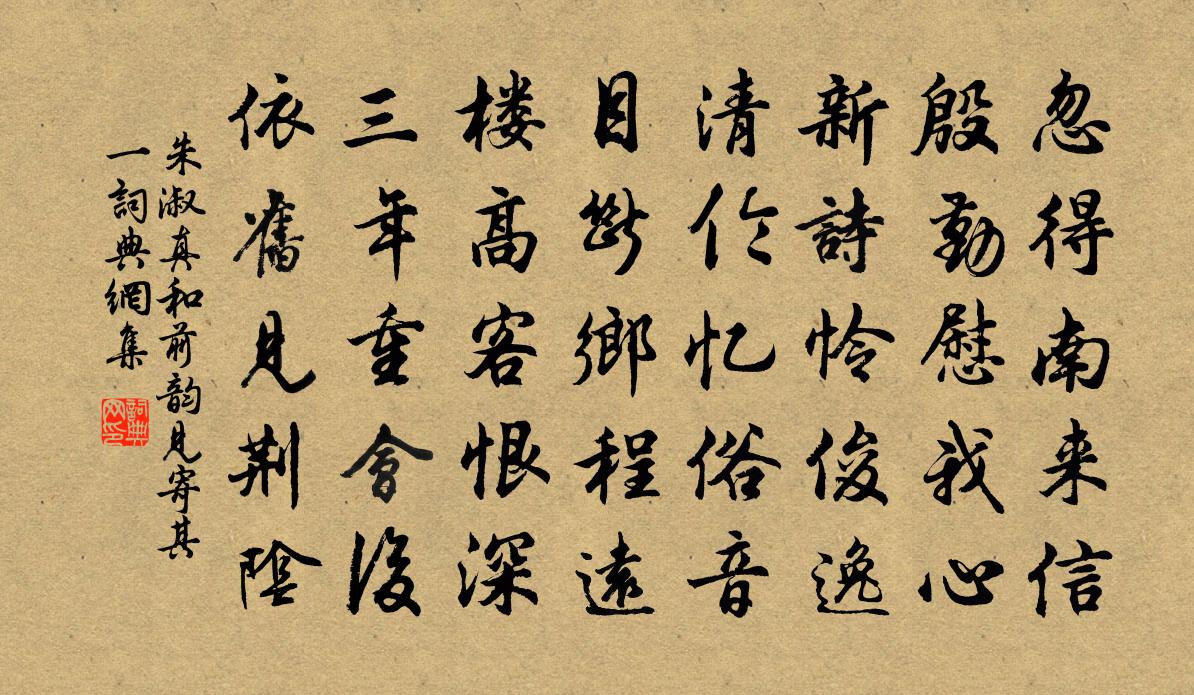 忽得南来信
殷勤慰我心
新詩怜俊逸
清忆俗音
目斷鄉程遠
楼高客恨深
三年重會後
依舊見荆陰
朱淑真和前韵見寄其
一詞典網集
詞典
网印